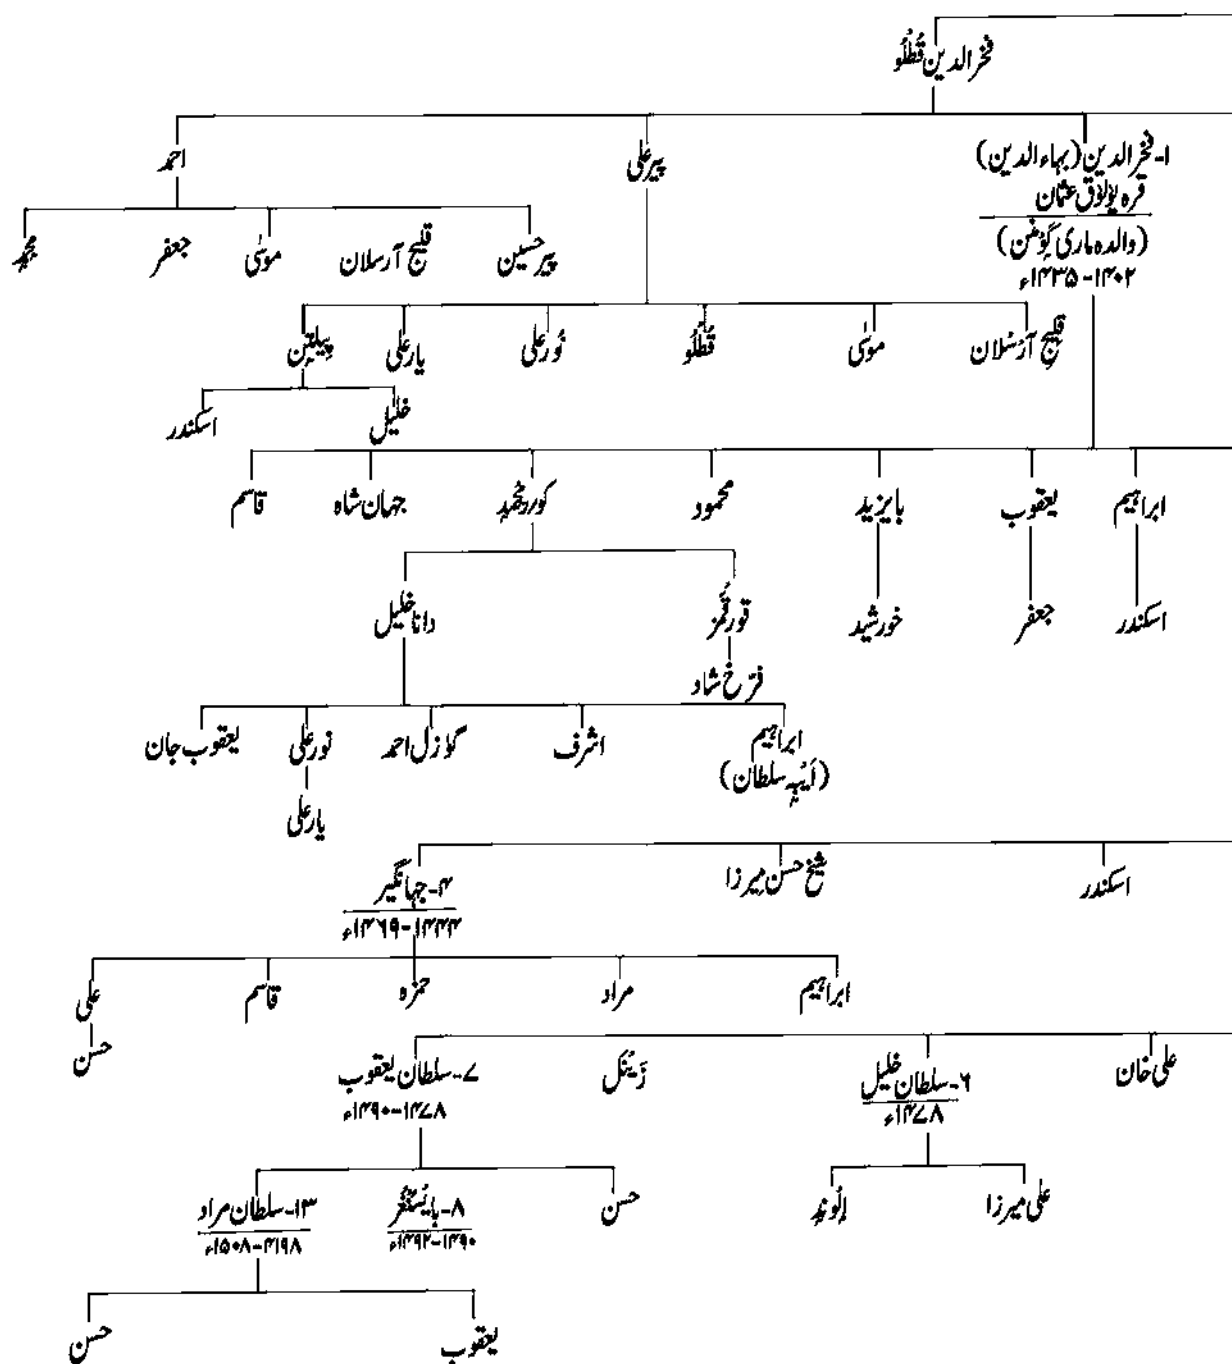 فخرالدین قُطْلُو
۱-فخرالدین (بہاءالدین)
قرہ یوُلوُق عثمان
(والدہ ماری گوٴمنن)
۱۴۰۲-۱۴۳۵ء
پیر علی
احمد
پیر حسین
قلیج آرسلان
موسیٰ
جعفر
محمد
قلیج آرسلان
موسیٰ
قُطْلُو
نُور علی
یار علی
پیلتن
خلیل
اسکندر
ابراہیم
یعقوب
بایزید
محمود
کور محمد
جہان شاہ
قاسم
اسکندر
جعفر
خورشید
قورقمز
دانا خلیل
فرّخ شاد
ابراہیم
(اَیْبَہ سلطان)
اشرف
گوزل احمد
نور علی
یعقوب جان
یار علی
اسکندر
شیخ حسن میرزا
۴-جہانگیر
۱۴۴۴-۱۴۶۹ء
ابراہیم
مراد
حمزہ
قاسم
علی
حسن
علی خان
۶-سلطان خلیل
۱۴۷۸ء
زَینَل
۷-سلطان یعقوب
۱۴۷۸-۱۴۹۰ء
علی میرزا
اِلْوند
حسن
۸-بایسُنقُر
۱۴۹۰-۱۴۹۲ء
۱۳-سلطان مراد
۴۱۹۸-۱۵۰۸ء
یعقوب
حسن